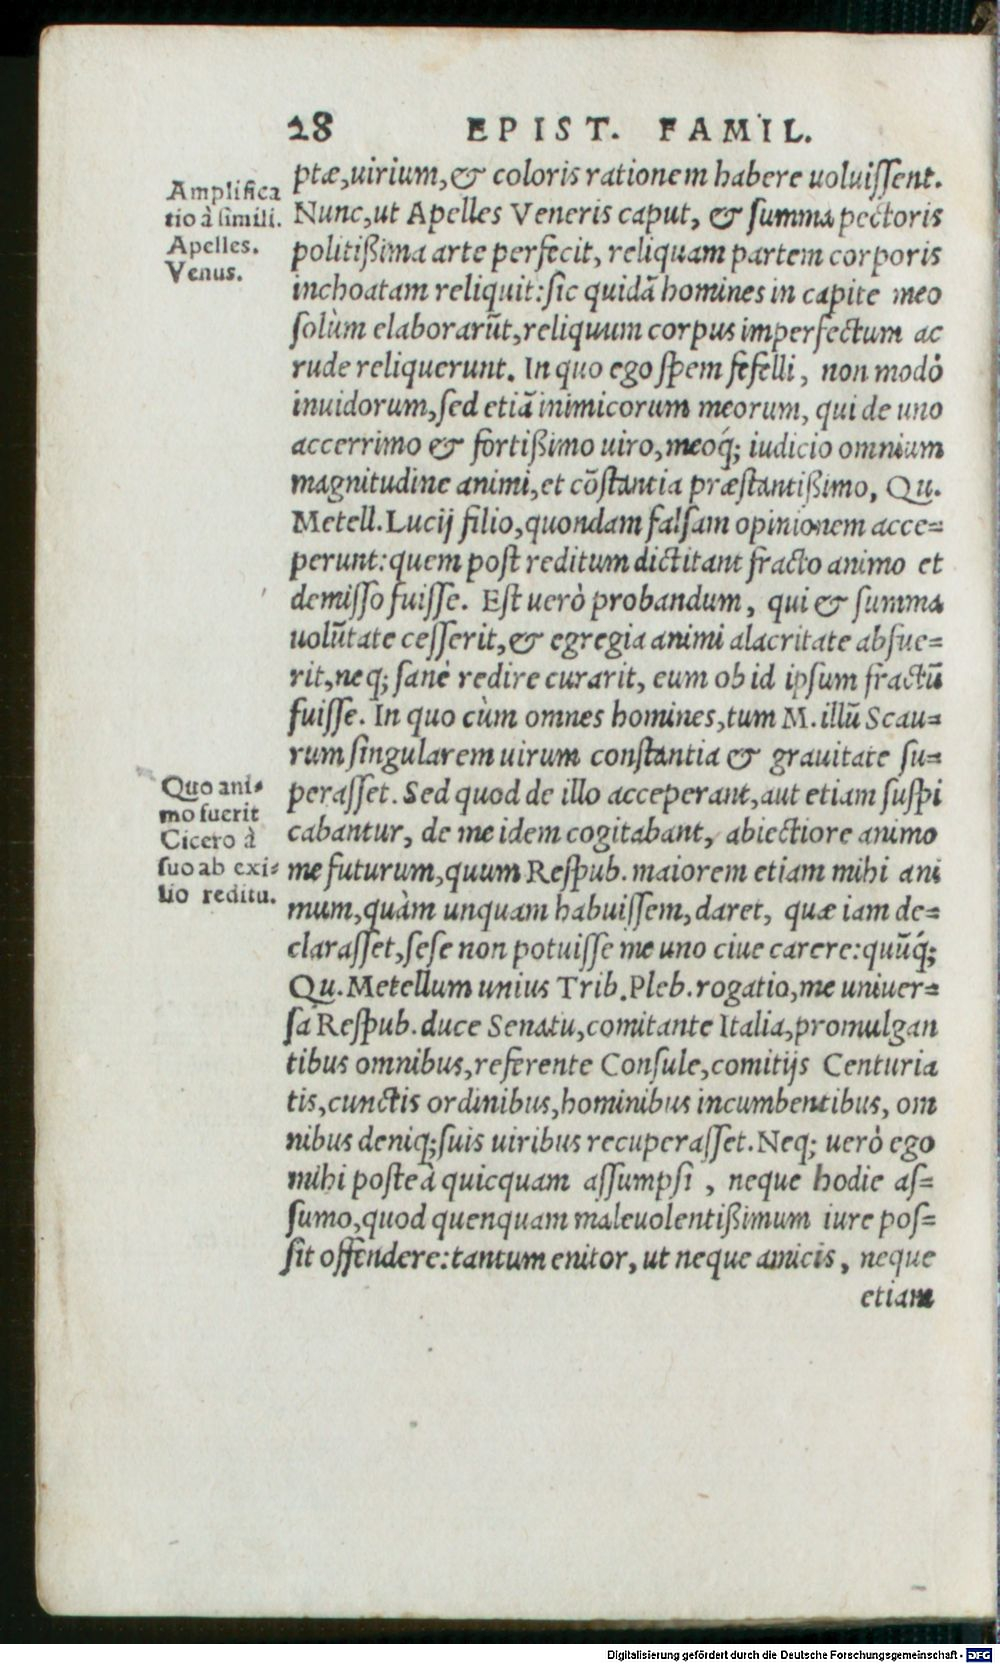 28 EPIST. FAMIL.
Amplifica
tio à simili.
Apelles.
Venus.
ptæ, uirium, & coloris rationem habere uoluiſſent.
Nunc, ut Apelles Veneris caput, & ſumma pectoris
politißima arte perfecit, reliquam partem corporis
inchoatam reliquit: ſic quidã homines in capite meo
ſolùm elaborarũt, reliquum corpus imperfectum ac
rude reliquerunt. In quo ego ſpem fefelli, non modò
inuidorum, ſed etiã inimicorum meorum, qui de uno
accerrimo & fortißimo uiro, meoq́; iudicio omnium
magnitudine animi, et cõſtantia præſtantißimo, Qu.
Metell. Lucij filio, quondam falſam opinionem acce=
perunt: quem poſt reditum dictitant fracto animo et
demiſſo fuiſſe. Eſt uerò probandum, qui & ſumma
uolũtate ceſſerit, & egregia animi alacritate abfue=
rit, neq; ſanè redire curarit, eum ob id ipſum fractũ
fuiſſe. In quo cùm omnes homines, tum M. illũ Scau=
rum ſingularem uirum conſtantia & grauitate ſu=
Quo ani=
mo fuerit
Cicero à
ſuo ab exi=
lio reditu.
peraſſet. Sed quod de illo acceperant, aut etiam ſuſpi
cabantur, de me idem cogitabant, abiectiore animo
me futurum, quum Reſpub. maiorem etiam mihi ani
mum, quàm unquam habuiſſem, daret, quæ iam de=
claraſſet, ſeſe non potuiſſe me uno ciue carere: quũq́;
Qu. Metellum unius Trib. Pleb. rogatio, me uniuer=
ſa Reſpub. duce Senatu, comitante Italia, promulgan
tibus omnibus, referente Conſule, comitijs Centuria
tis, cunctis ordinibus, hominibus incumbentibus, om
nibus deniq; ſuis uiribus recuperaſſet. Neq; uerò ego
mihi poſteà quicquam aſſumpſi, neque hodie aſ=
ſumo, quod quenquam maleuolentißimum iure poſ=
ſit offendere: tantum enitor, ut neque amicis, neque
etiam
Digitalisierung gefördert durch die Deutsche Forschungsgemeinschaft - DFG